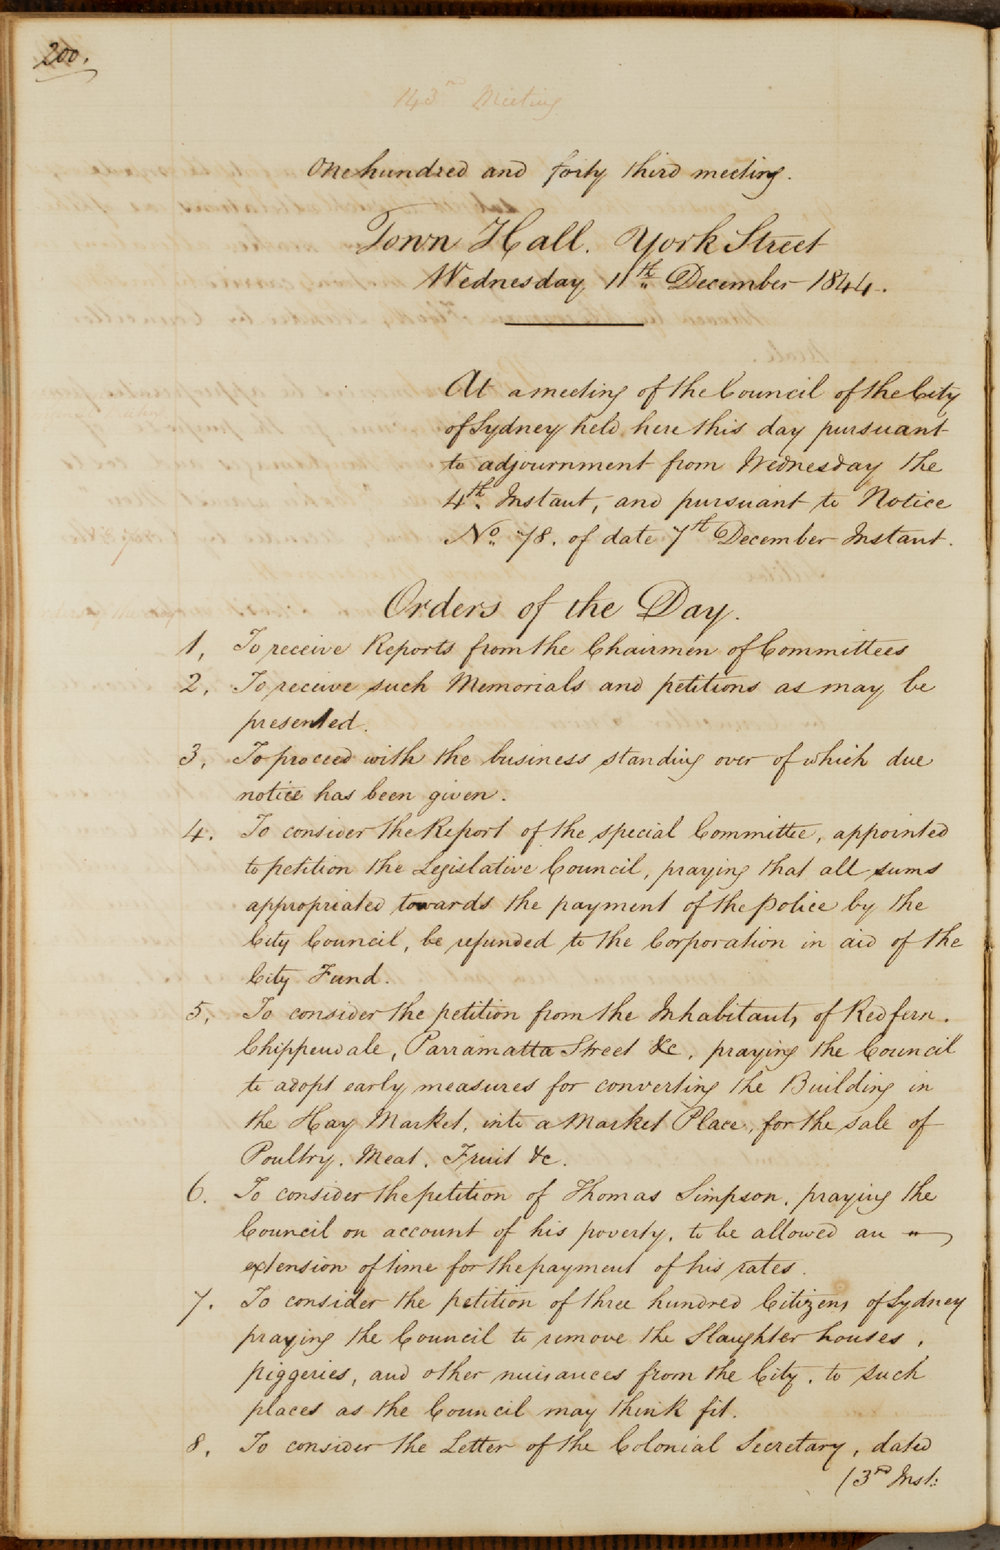 200.
143rd Meeting
One hundred and forty third meeting.
Town Hall. York Street
Wednesday 11th December 1844.
At a meeting of the Council of the City
of Sydney held here this day pursuant
to adjournment from Wednesday the
4th Instant, and pursuant to Notice
No. 78. of date 7th December Instant.
Orders of the Day.
1, To receive Reports from the Chairmen of Committees
2, To receive such Memorials and petitions as may be
presented.
3, To proceed with the business standing over of which due
notice has been given.
4. To consider the Report of the special Committee, appointed
to petition the Legislative Council, praying that all sums
appropriated towards the payment of the Police by the
City Council, be refunded to the Corporation in aid of the
City Fund.
5, To consider the petition from the Inhabitants of Redfern.
Chippendale, Parramatta Street &c, praying the Council
to adopt early measures for converting the Building in
the Hay Market, into a Market Place, for the sale of
Poultry. Meat. Fruit &c.
6. To consider the petition of Thomas Simpson. praying the
Council on account of his poverty, to be allowed an
extension of time for the payment of his rates.
7. To consider the petition of three hundred Citizens of Sydney
praying the Council to remove the Slaughter houses,
piggeries, and other nuisances from the City. to such
places as the Council may think fit.
8, To consider the Letter of the Colonial Secretary, dated
/3rd Inst: